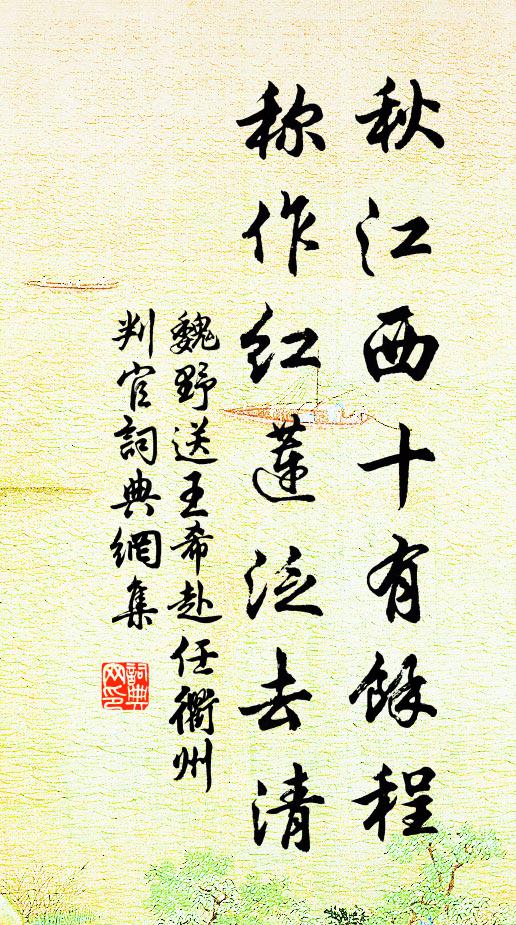 秋江西十有餘程
称作红蓮泛去清
魏野送王希赴任衢州
判官詞典網集
詞典網印